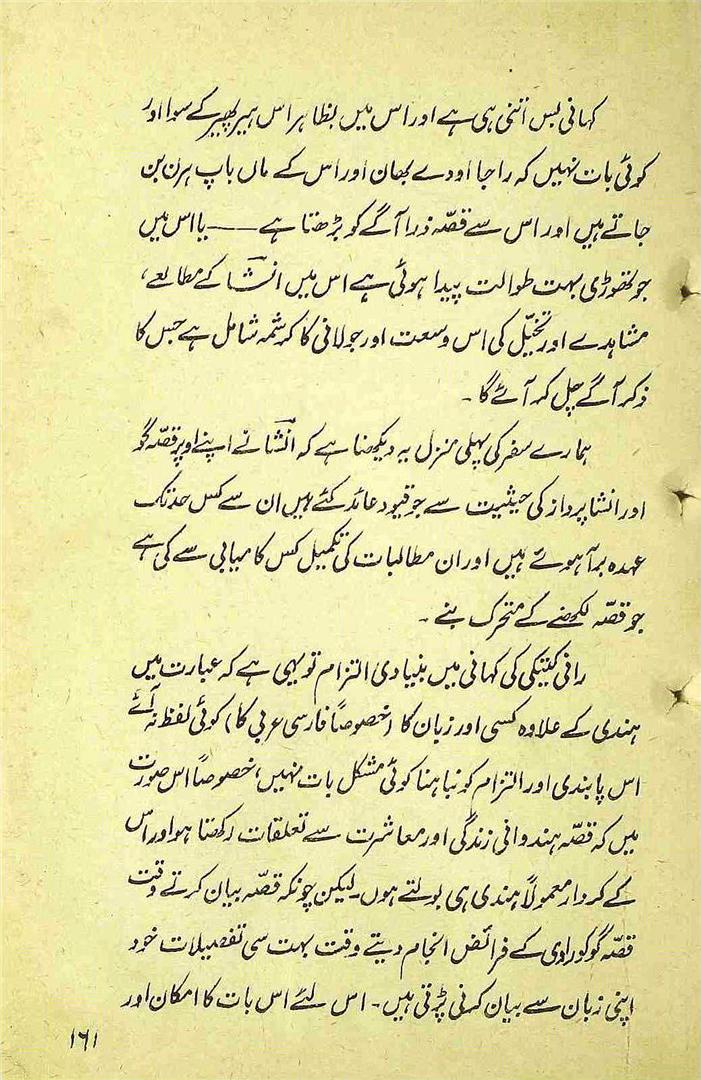 کہانی بس اتنی ہی ہے اور اس میں بظاہر اس ہیر پھیر کے سوا اور
کوئی بات نہیں کہ راجا اودے بھان اور اس کے ماں باپ ہرن بن
جاتے ہیں اور اس سے قصّہ ذرا آگے کو بڑھتا ہے —— یا اس میں
جو تھوڑی بہت طوالت پیدا ہوئی ہے اس میں انشاؔ کے مطالعے،
مشاہدے اور تخیّل کی اس وسعت اور جولانی کا کرشمہ شامل ہے جس کا
ذکر آگے چل کر آئے گا۔
ہمارے سفر کی پہلی منزل یہ دیکھنا ہے کہ انشاؔ نے اپنے اوپر قصّہ گو
اور انشا پرداز کی حیثیت سے جو قیود عائد کئے ہیں ان سے کس حد تک
عہدہ برآ ہوئے ہیں اور ان مطالبات کی تکمیل کس کامیابی سے کی ہے
جو قصّہ لکھنے کے متحرک بنے۔
رانی کیتکی کی کہانی میں بنیادی التزام تو یہی ہے کہ عبارت میں
ہندی کے علاوہ کسی اور زبان کا (خصوصاً فارسی عربی کا) کوئی لفظ نہ آئے
اس پابندی اور التزام کو نباہنا کوئی مشکل بات نہیں، خصوصاً اس صورت
میں کہ قصّہ ہندوانی زندگی اور معاشرت سے تعلقات رکھتا ہو اور اس
کے کردار معمولاً ہندی ہی بولتے ہوں۔ لیکن چونکہ قصّہ بیان کرتے وقت
قصّہ گو کو راوی کے فرائض انجام دیتے وقت بہت سی تفصیلات خود
اپنی زبان سے بیان کرنی پڑتی ہیں۔ اس لئے اس بات کا امکان اور
۱۶۱